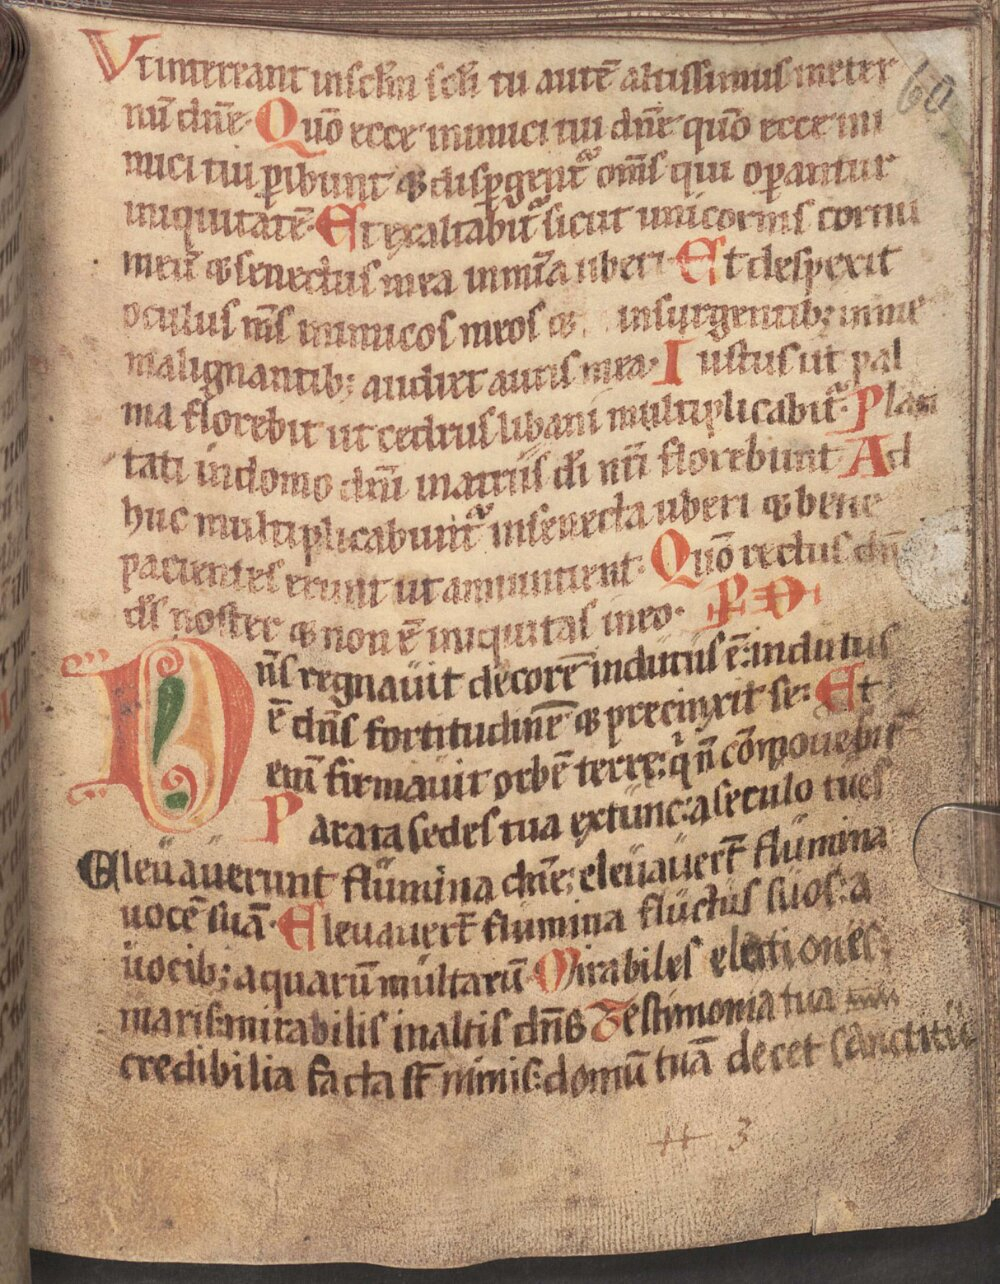 Ut intereant insclm̄ scłi tu autē altissimus in eter
nū dn̄e· Quō ecce inimici tui dn̄e quō ecce ini
mici tui ꝑibunt & disꝑgent᷑ om̄s qui oꝑantur
iniquitatē· Et exaltabit᷑ sicut unicornis cornu
meū & senectus mea in mīa uberi· Et despexit
oculus m̄s inimicos meos & insurgentib; in me
malignantib; audiet auris mea· Iustus ut pal
ma florebit ut cedrus libani multiplicabit᷑· Plan
tati in domo dn̄i in atriis di̅ nr̄i florebunt Ad
huc multiplicabunt᷑ in senecta uberi & bene
pacientes erunt ut annuntient· Quō rectus dn̄s
ds̄ noster & non ē iniquitas in eo·
Dn̄s regnauit decorē indutus ē: indutus
ē dn̄s fortitudinē & precinxit se: Et
enī firmauit orbē terrę; q̇ n̄ cōmouebit᷑
Parata sedes tua ex tunc: a seculo tu es
Eleuauerunt flumina dn̄e; eleuauer̄t flumina
uocē suā· Eleuauer̄t flumina fluctus suos: a
uocib; aquarū multarū· Mirabiles elationes
maris: mirabilis in altis dn̄s Testimonia tua
credibilia facta st̄ nimis: domū tuā decet sanctitu
H 3
60